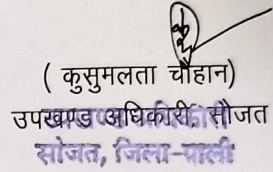 ( कुसुमलता चौहान)
उपखण्ड अधिकारी, सौजत
सोजत, जिला-पाली